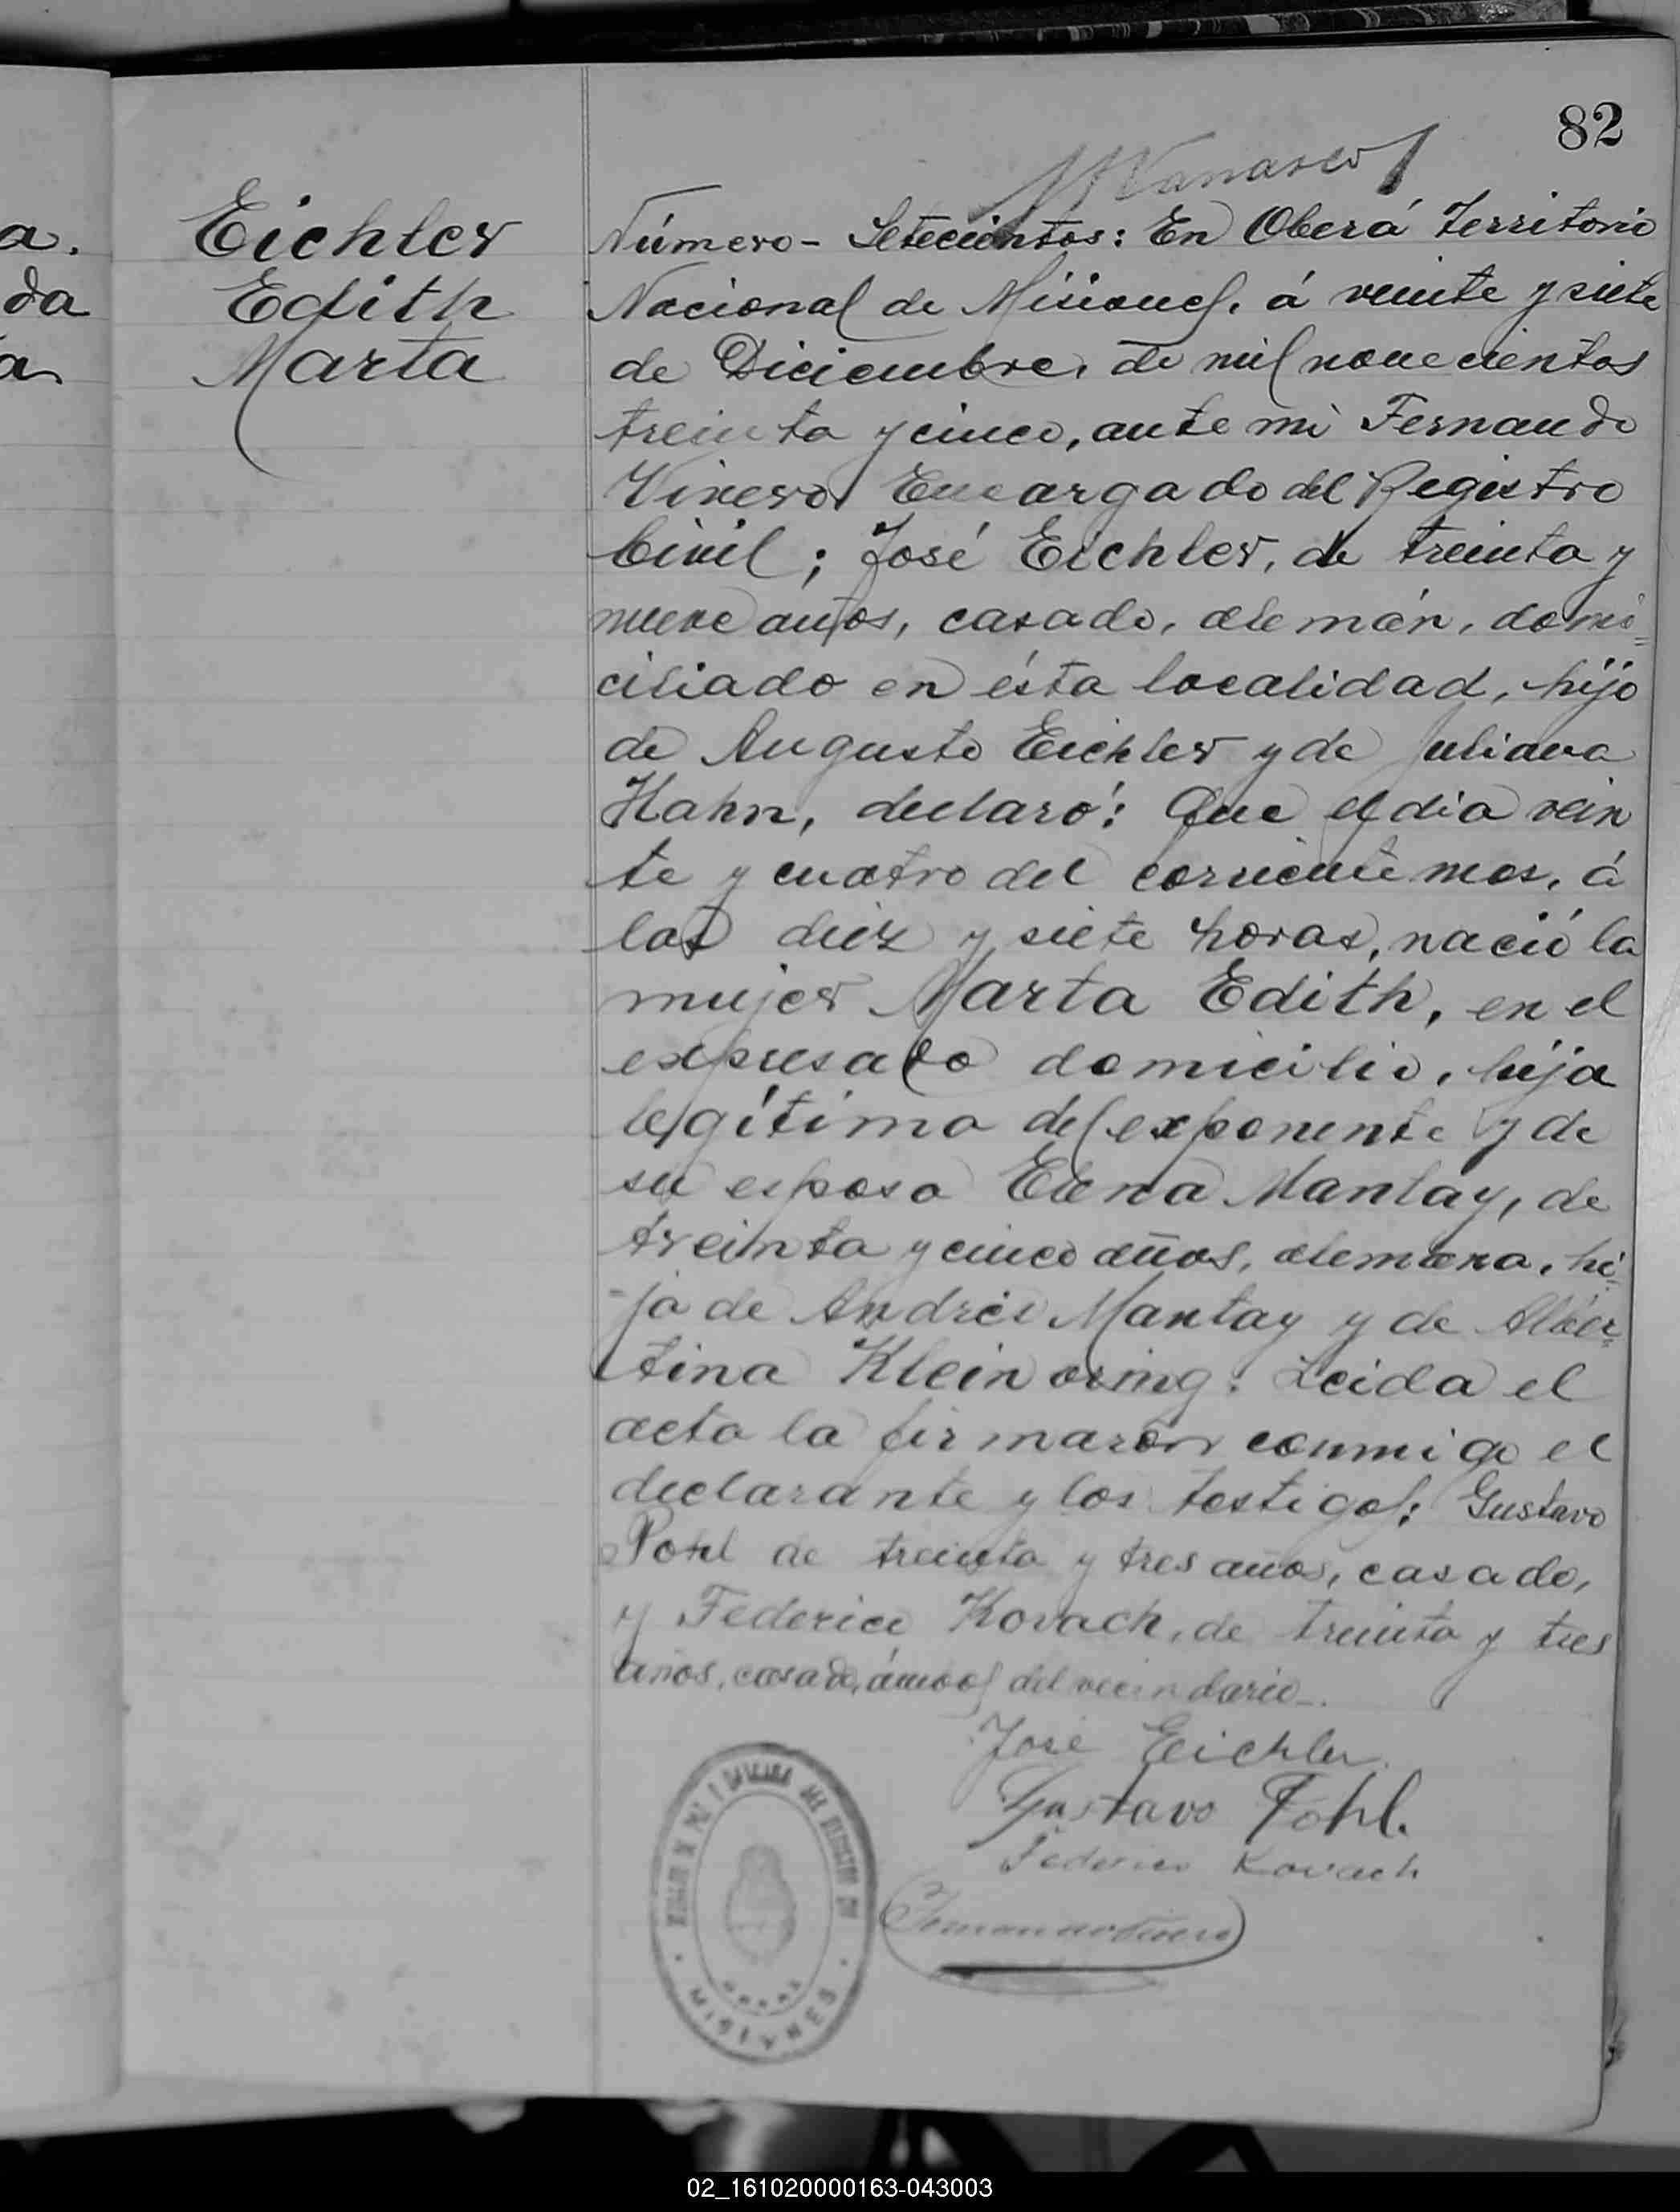 82
a.
da
a
Eichler
Edith
Marta
Número - Setecientos: En Oberá Territorio
Nacional de Misiones, á veinte y siete
de Diciembre, de mil novecientos
treinta y cinco, ante mi Fernando
Vivero Encargado del Registro
Civil; José Eichler, de treinta y
nueve años, casado, alemán, domi=
ciliado en ésta localidad, hijo
de Augusto Eichler y de Juliana
Hahn, declaró: Que el dia vein
te y cuatro del corriente mes, á
las diez y siete horas, nació la
mujer Marta Edith, en el
expresado domicilio, hija
legítima del exponente y de
su esposa Elena Mantay, de
treinta y cinco años, alemana, hi=
-ja de Andrés Mantay y de Alber=
tina Klein. Leida el
acta la firmaron conmigo el
declarante y los testigos: Gustavo
Pohl de treinta y tres años, casado,
y Federico Kovach, de treinta y tres
años, casado, ámbos del vecindario-.
José Eichler.
Gustavo Pohl.
Federico Kovach
MISIONES
02_161020000163-043003